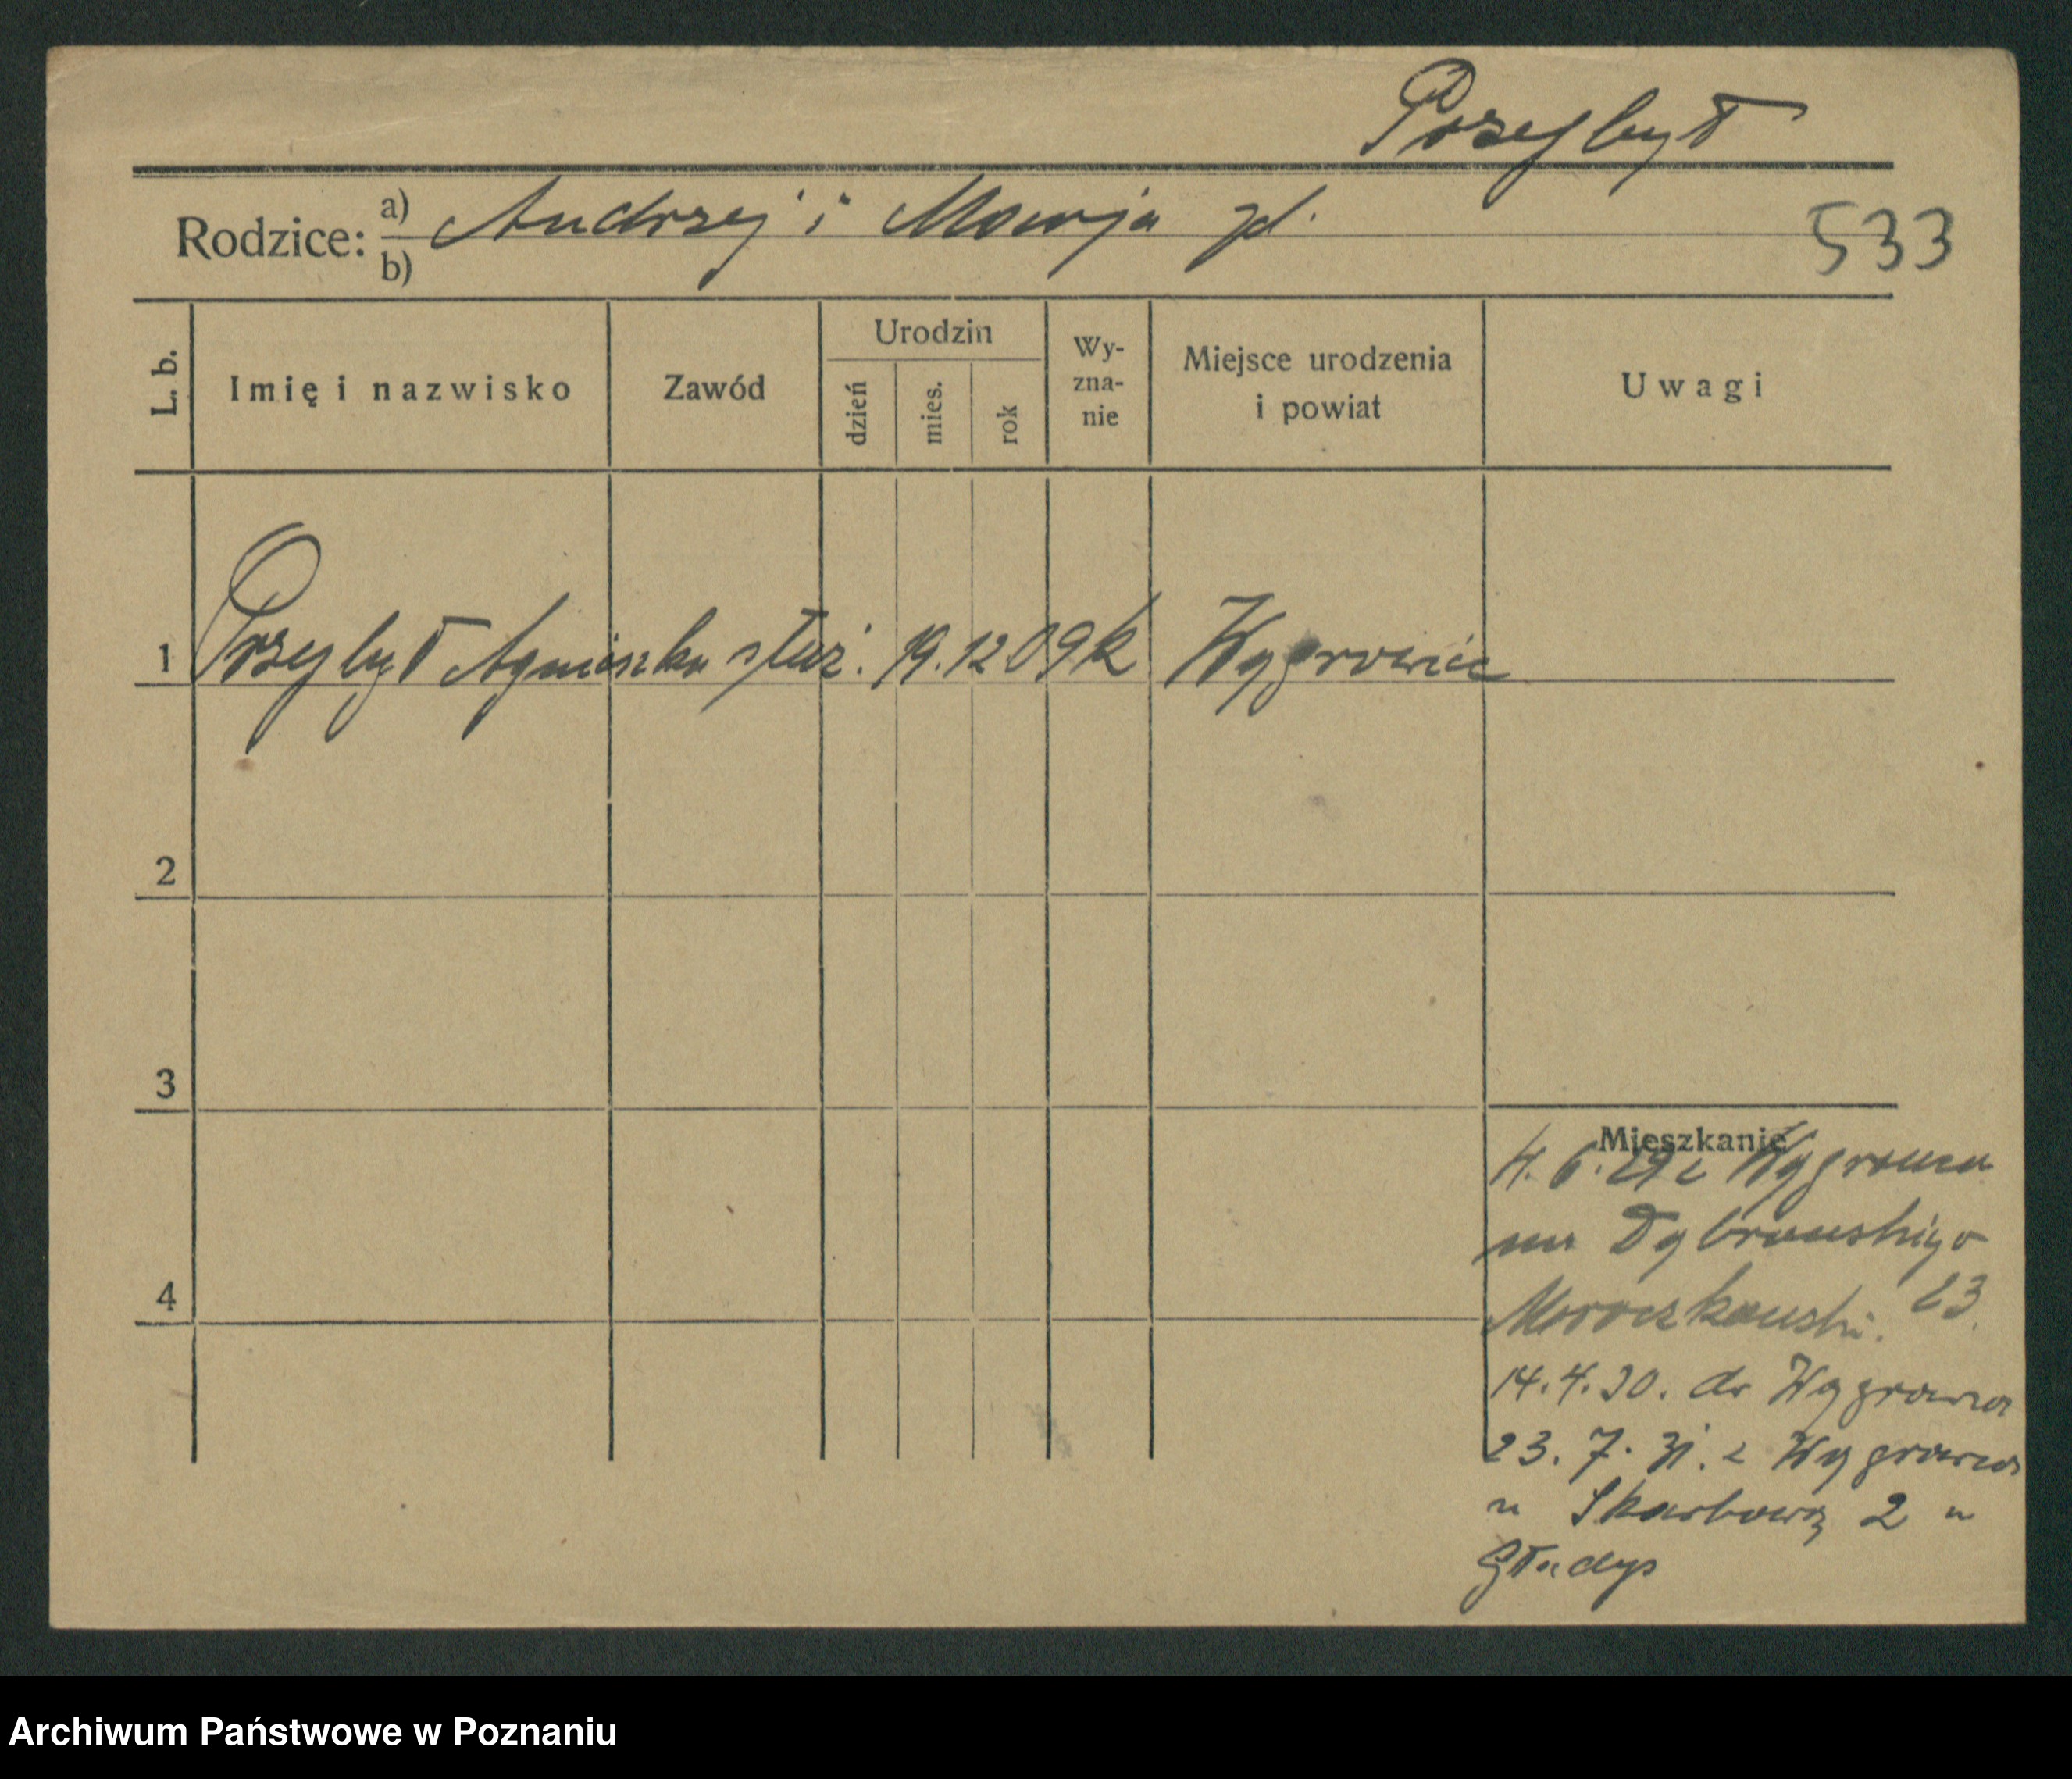 Przybył
Rodzice: a) Andrzej i Marja zd.
b)
533
L. b.
Imię i nazwisko
Zawód
Urodzin
dzień
mies.
rok
Wy-
zna-
nie
Miejsce urodzenia
i powiat
Uwagi
1 Przybył Agnieszka służ. 19. 12 09 k Wągrowiec
2
3
4
Mieszkanie
4. 6. 29 z Wągrowca
na Dąbrowskiego
23.
14. 4. 30. do Wągrowca
23. 7. 31. z Wągrowca
n Skarbową 2 u
Gładys
Archiwum Państwowe w Poznaniu